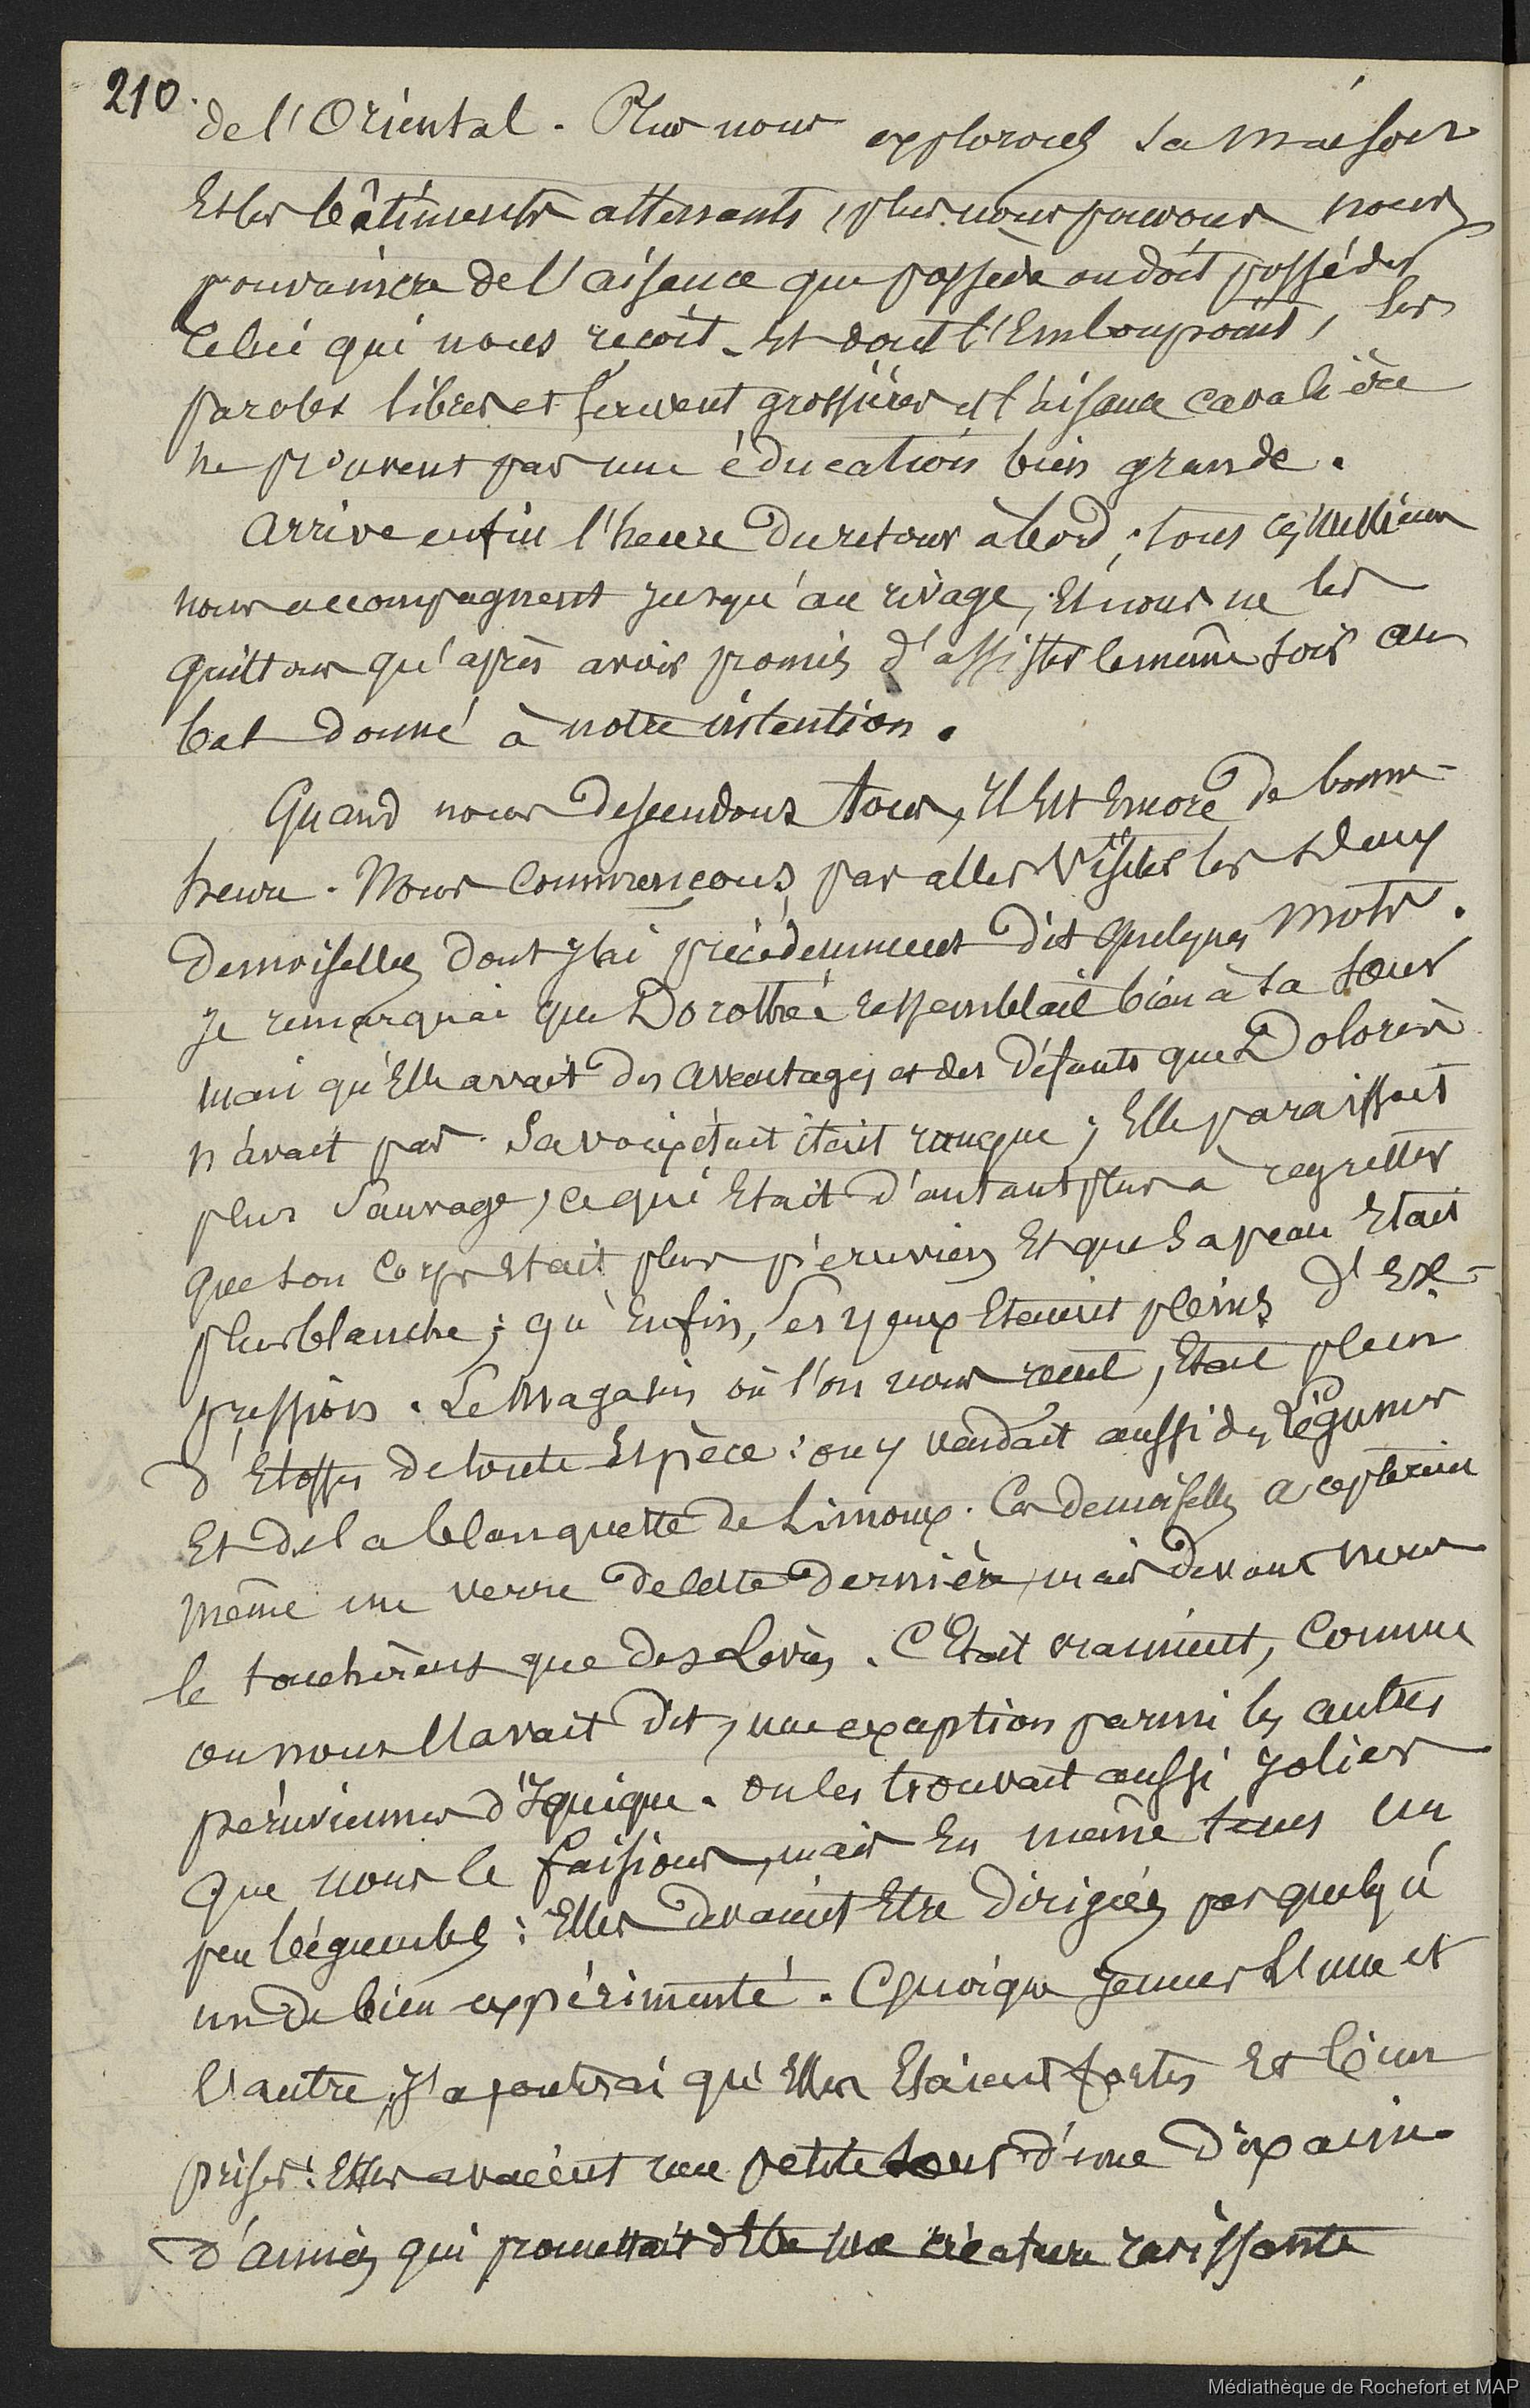 210.
de l'Oriental. Plus nous explorons sa maison
Et les bâtiments attenants, plus nous pouvons nous
convaincre de l'aisance que possède ou doit posséder
Celui qui nous reçoit. Et dont l'Embonpoint, les
paroles libres et souvent grossières et l'aisance cavalière
ne prouvent pas une éducation bien grande.
Arrive enfin l'heure du retour à bord; tous ces
nous accompagnent jusqu'au rivage, Et nous ne les
quittons qu'après avoir promis d'assister le même soir au
bal donné à notre intention.
Quand nous descendons tous, Il Est Encore de bonne-
heure. Nous Commençons par aller Visiter les deux
demoiselles dont j'ai précédemment dit quelques mots.
Je remarquai que Dorothée ressemblait bien à sa soeur
mais qu'Elle avait des avantages et des défauts que Dolorès
n'avait pas. Sa voix était était rauque; Elle paraissait
plus Sauvage, ce qui Etait d'autant plus à regretter
que son Corps Etait plus péruvien Et que sa peau Etait
plus blanche; qu'Enfin, ses yeux Etaient pleins d'Ex-
pression. Le Magasin où l'on nous reçut, Etait plein
d'Etoffes de toute Espèce: on y vendait aussi des Légumes
Et de la blanquette de Limoux. Ces demoiselles acceptèrent
même un verre de cette dernière, mais devant nous
le touchèrent que des Lèvres. C'Etait vraiment, Comme
on nous l'avait dit, une exception parmi les autres
péruviennes d'Iquique. On les trouvait aussi Jolies
que nous le faisions, mais En même temps un
peu bégueules: Elles devaient Etre dirigées par quelqu'
un de bien expérimenté. Quoique Jeunes L'une et
l'autre, J'ajouterai qu'Elles Etaient fortes Et bien
prises: Elles avaient une petite soeur d'une dixaine
d'années qui promettait d'Etre une créature ravissante
Médiathèque de Rochefort et MAP